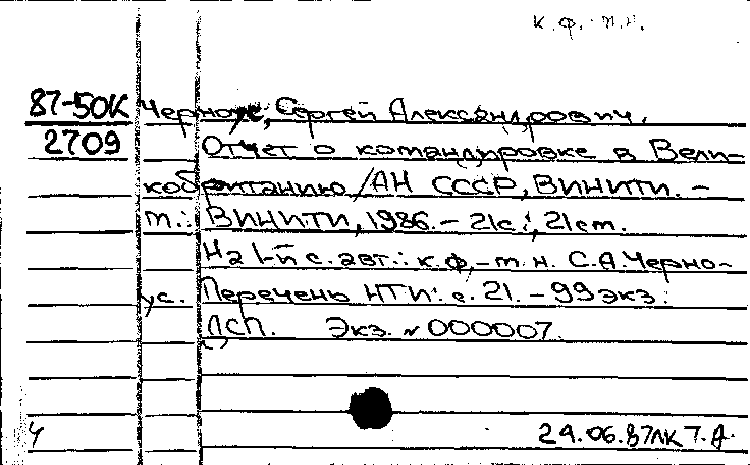 к.ф.-т.н.
87-50К Черноус, Сергей Александрович.
2709 Отчет о командировке в Вели-
кобританию / АН СССР, ВИНИТИ. -
М.: ВИНИТИ, 1986. - 21с.; 21 cm.
На 1-й с. авт.: к.ф.-т.н. С.А. Черно-
ус. Перечень НТИ: с. 21. - 99 экз.
ДСП. Экз. № 000007.
Ч 24.06.87 ЛК Т.А.